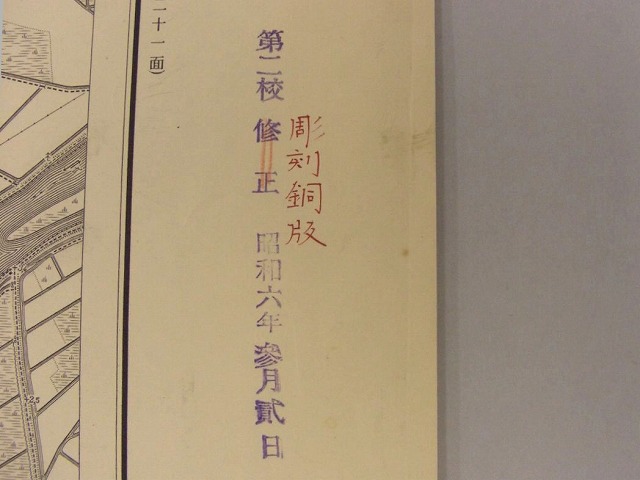 彫刻銅版
第二校 修正 昭和六年參月貳日
二十一面)
2.5